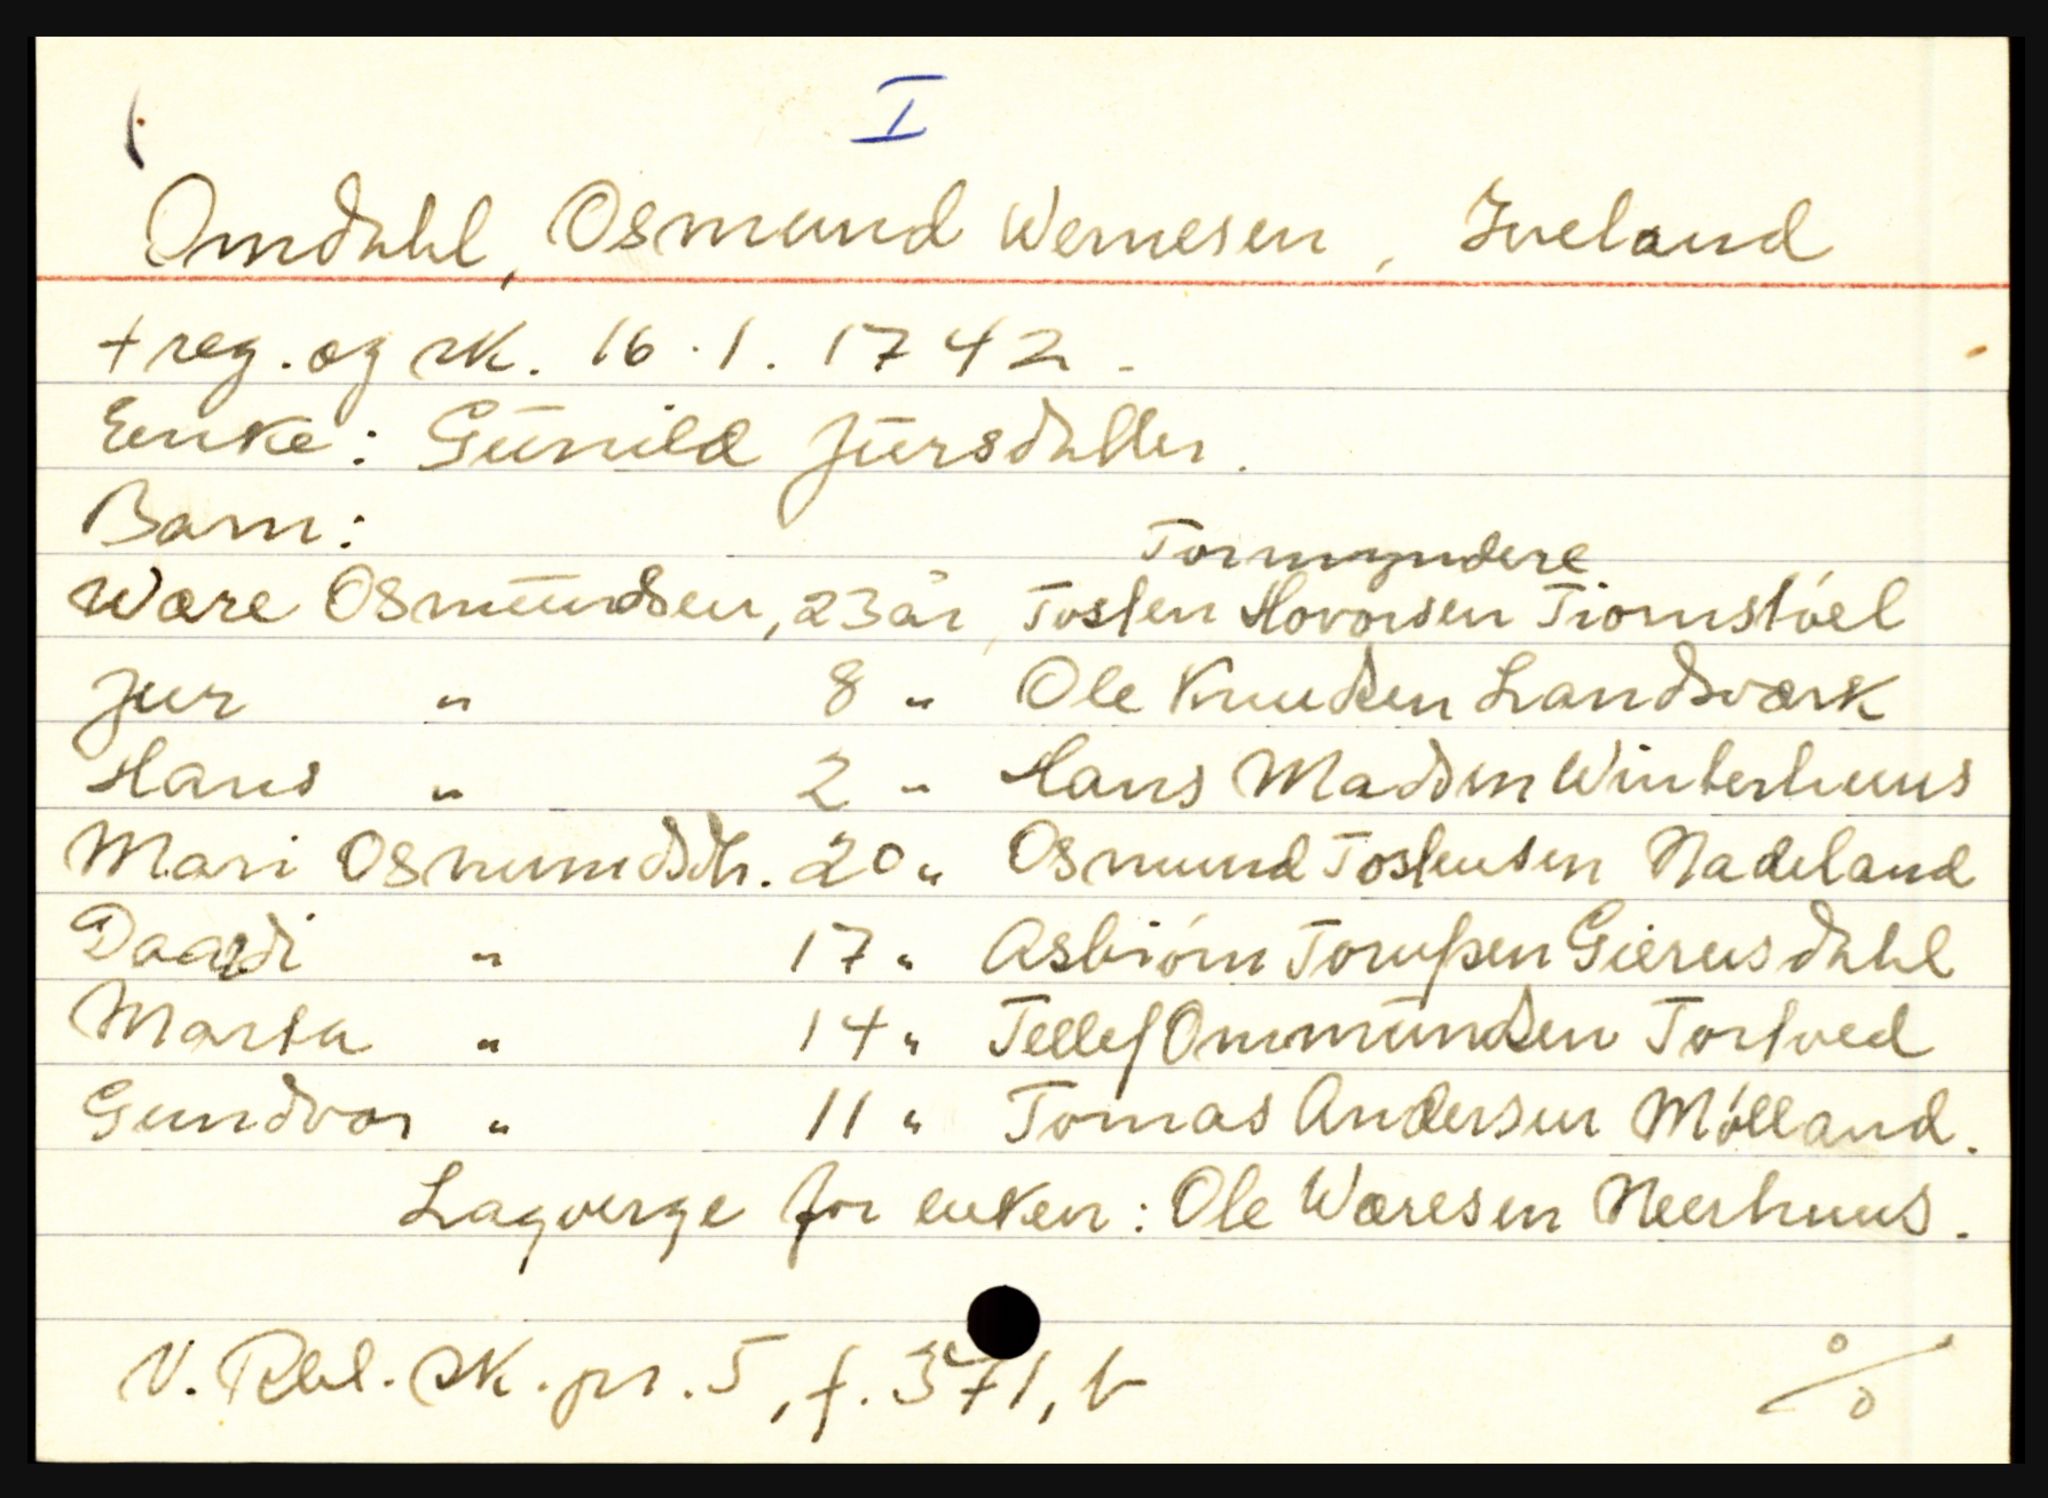 I
Omdahl, Osmund Wernesen, Iveland
+ reg. og sk. 16.1.1742.
Enke: Gunild Jursdatter.
Barn:
Formyndere
Wære Osmundsen, 23 år, Tosten Hovorsen Tiomstöel
Jur " 8 " Ole Knudsen Landsværk
Hans " 2 " Hans Madsen Winterhuus
Mari Osmundsdtr. 20 " Osmund Tostensen Nadeland
Daardi " 17 " Asbiörn Torupsen Gierusdahl
Marta " 14 " Tellef Ommundsen Tortved
Gundvor " 11 " Tomas Andersen Mölland.
Lagverge for enken: Ole Wæresen Neerhuus.
V. Rbl. sk. pr. 5, f. 371, b